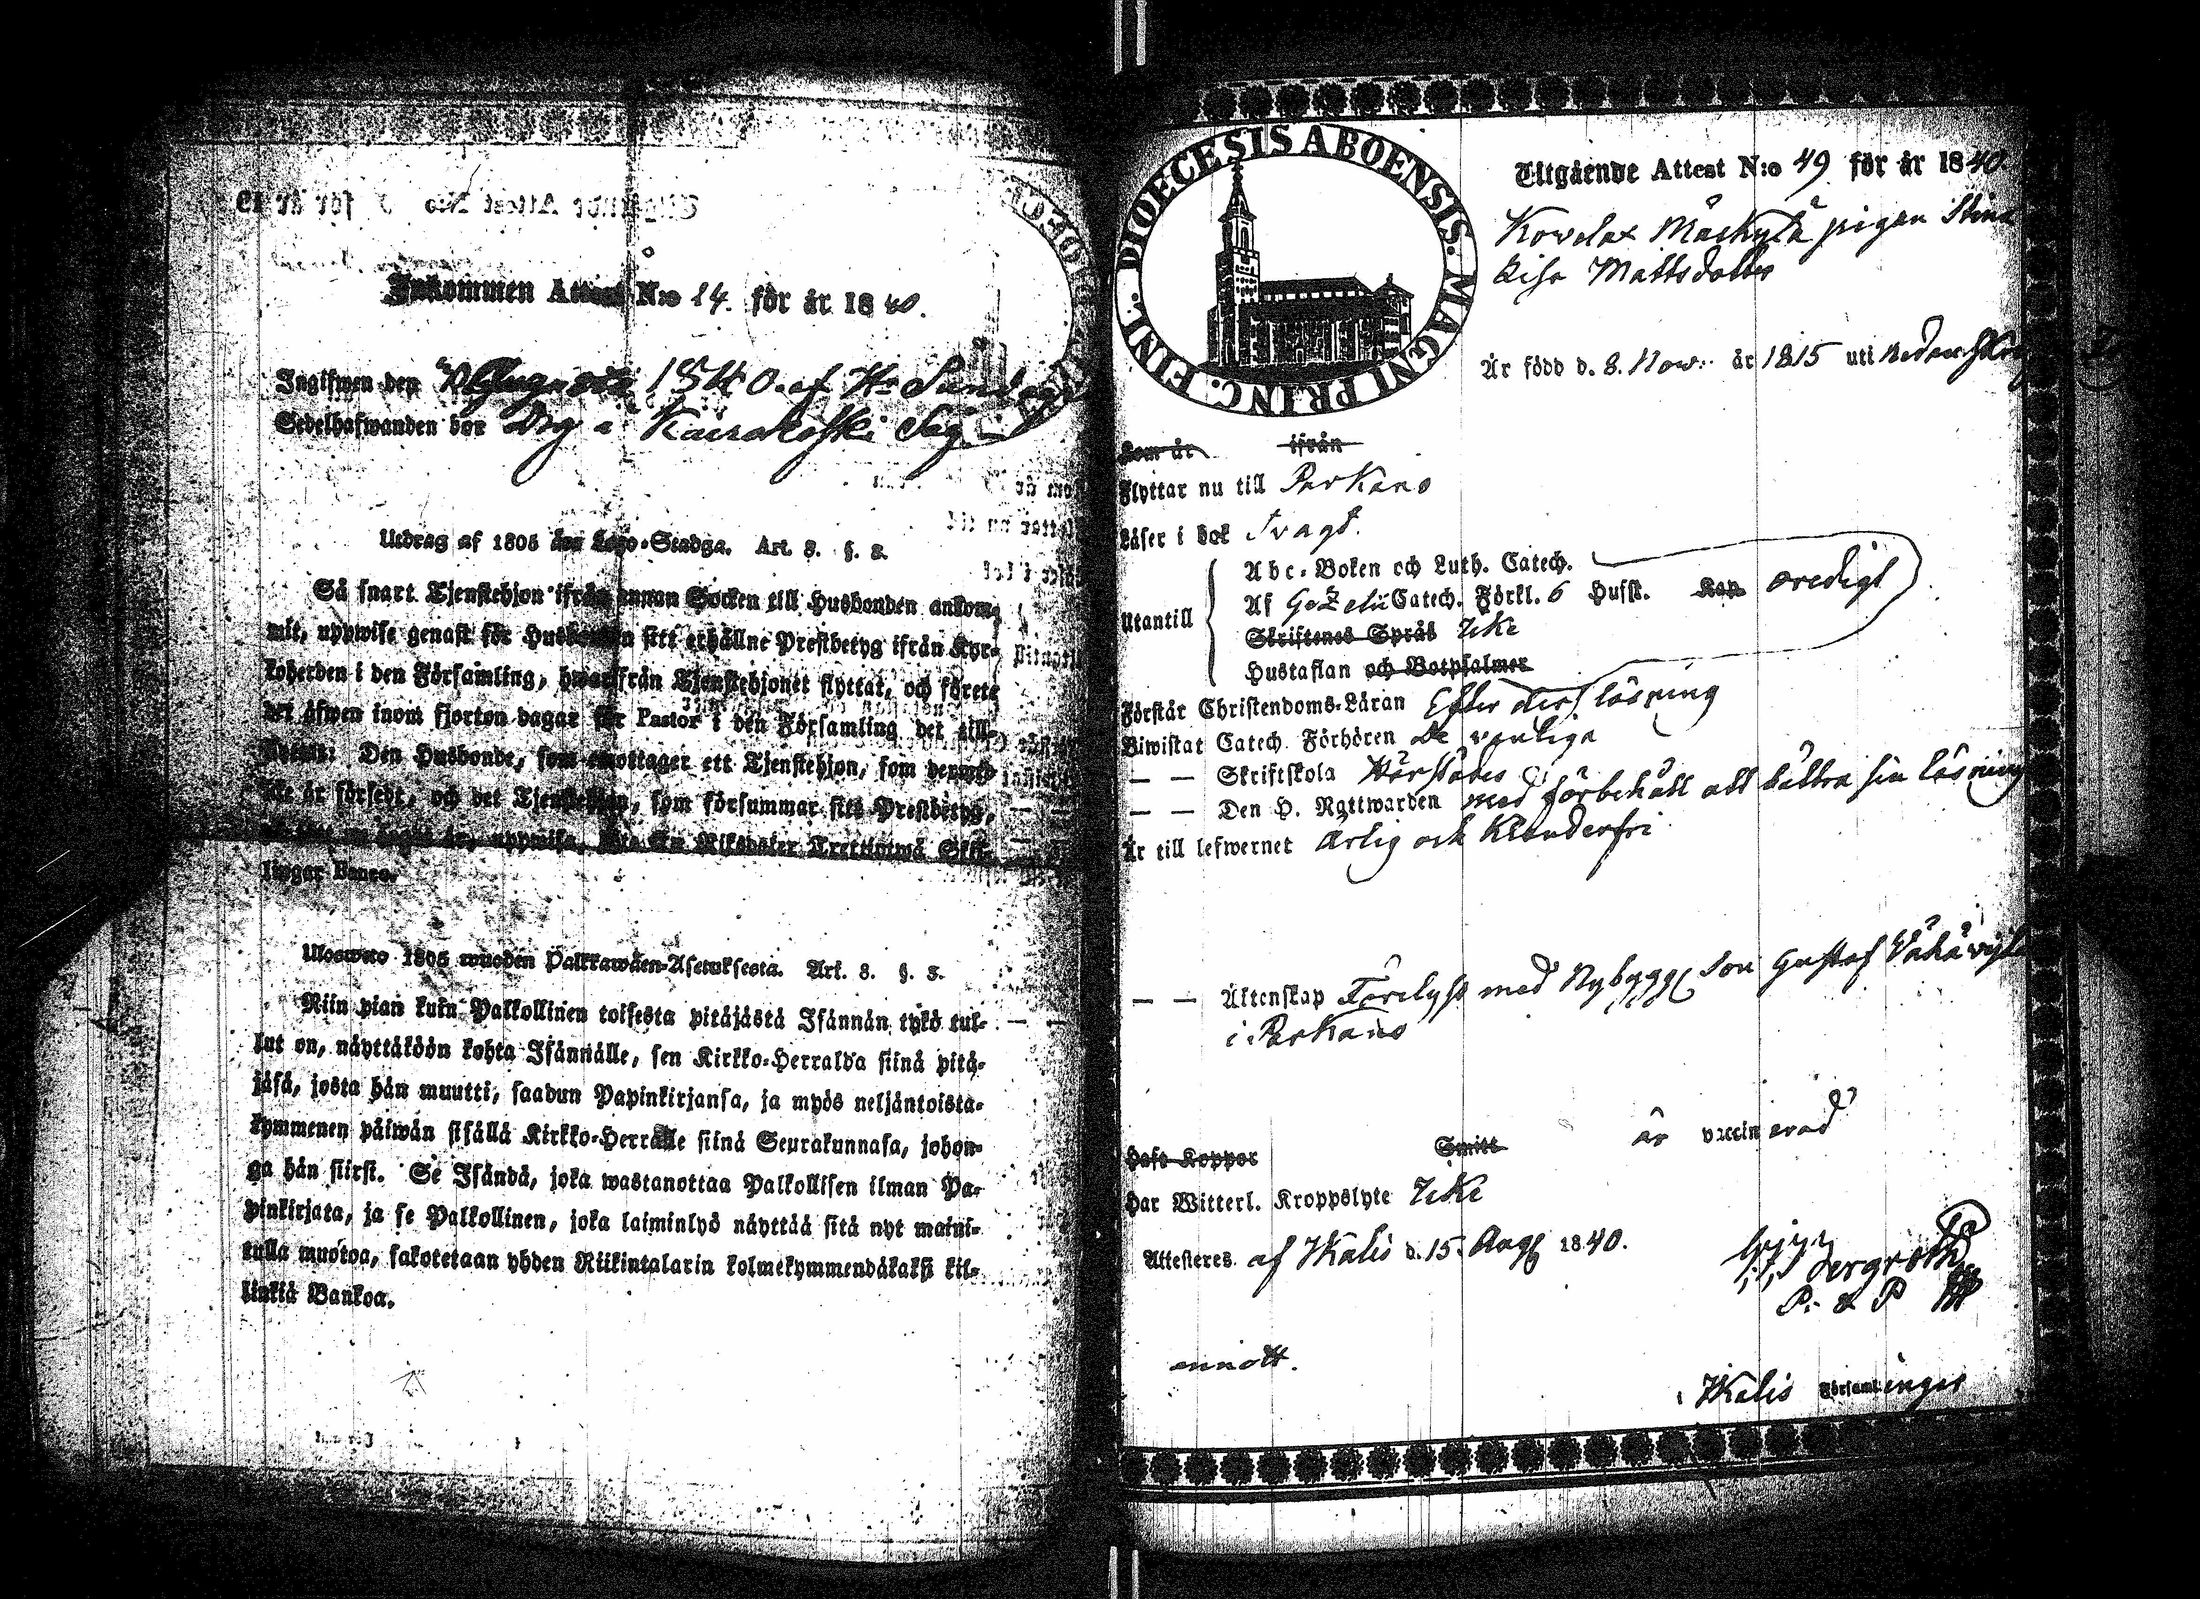 Inkommen Attest N:o 14. för år 1840.
Ingifwen den 1840. af
Sedelhafwanden bor
Utdrag af 1805 års Lego-Stadga. Art. 3. §. 3.
Så snart Tjenstehjon ifrån annan Socken till Husbonden ankom-
mit, uppwise genast för Husbonden sitt erhållne Prestbetyg ifrån Kyr-
koherden i den Församling, hwarifrån Tjenstehjonet flyttat, och förete
det äfwen inom fjorton dagar för Pastor i den Församling det till-
Den Husbonde, som emottager ett Tjenstehjon, som dermed
är försedt, och det Tjenstehjon, som försummar sitt Prestbetyg,
uppwisa, Riksdaler Trettiotwå Skil-
lingar Banco.
Uloswето 1805 wuoden Palkkawäen-Asetuksesta. Art. 3. §. 3.
Niin pian kuin Palkollinen toisesta pitäjästä Isännän tykö tul-
lut on, näyttäköön kohta Isännälle, sen Kirkko-Herralda siinä pitä-
jäsä, josta hän muutti, saadun Papinkirjansa, ja myös neljäntoista-
kymmenen päiwän sisällä Kirkko-Herralle siinä Seurakunnasa, johon-
ga hän siirsi. Se Isändä, joka wastanottaa Palkollisen ilman Pa-
pinkirjata, ja se Palkollinen, joka laiminlyö näyttää sitä nyt maini-
tulla muotoa, sakotetaan yhden Riikintalarin kolmekymmendäkaksi kil-
linkiä Bankoa.
DIOECESIS ABOENSIS. MAGNI PRINC. FINL.
Utgående Attest N:o 49 för år 1840.
pigan Stina
Lisa Mattsdotter
Är född d. 8. Nov. år 1815 uti
Kom år ifrån
Flyttar nu till Parkano
Läser i bok svagt.
Utantill
Abc-Boken och Luth. Catech.
Af Catech. Förkl. 6 Husst. Kap. oredigt
Skriftenes Språk Icke
Hustaflan och Botpsalmer
Förstår Christendoms-Läran Efter dess läsning
Biwistat Catech. Förhören De vanliga
— — Skriftskola Härstädes
— — Den H. Nattwarden med förbehåll att bättra sin läsning
Är till lefwernet ärlig och klanderfri
— — Äktenskap Förelyst med Nybygg. son Gustaf
i Parkano
Haft Koppor Smitt är vaccinerad
Har Witterl. Kroppslyte Icke
Attesteres af Ikalis d. 15. Aug. 1840.
Bergroth
i Ikalis Församlingar